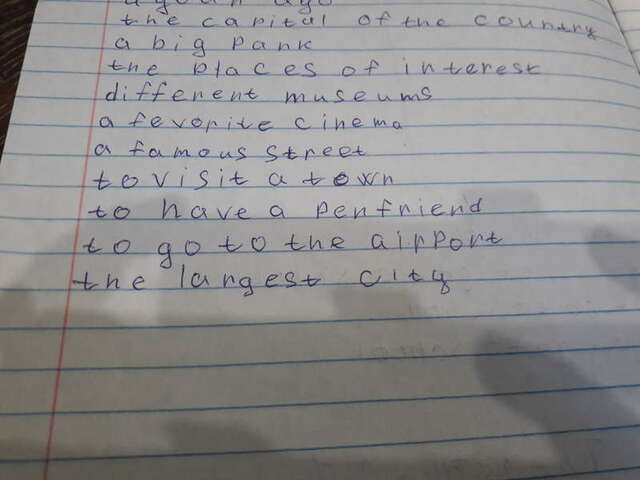 ago
the capital of the country
a big park
the places of interest
different museums
a fevorite cinema
a famous street
to visit a town
to have a penfriend
to go to the airport
the largest city